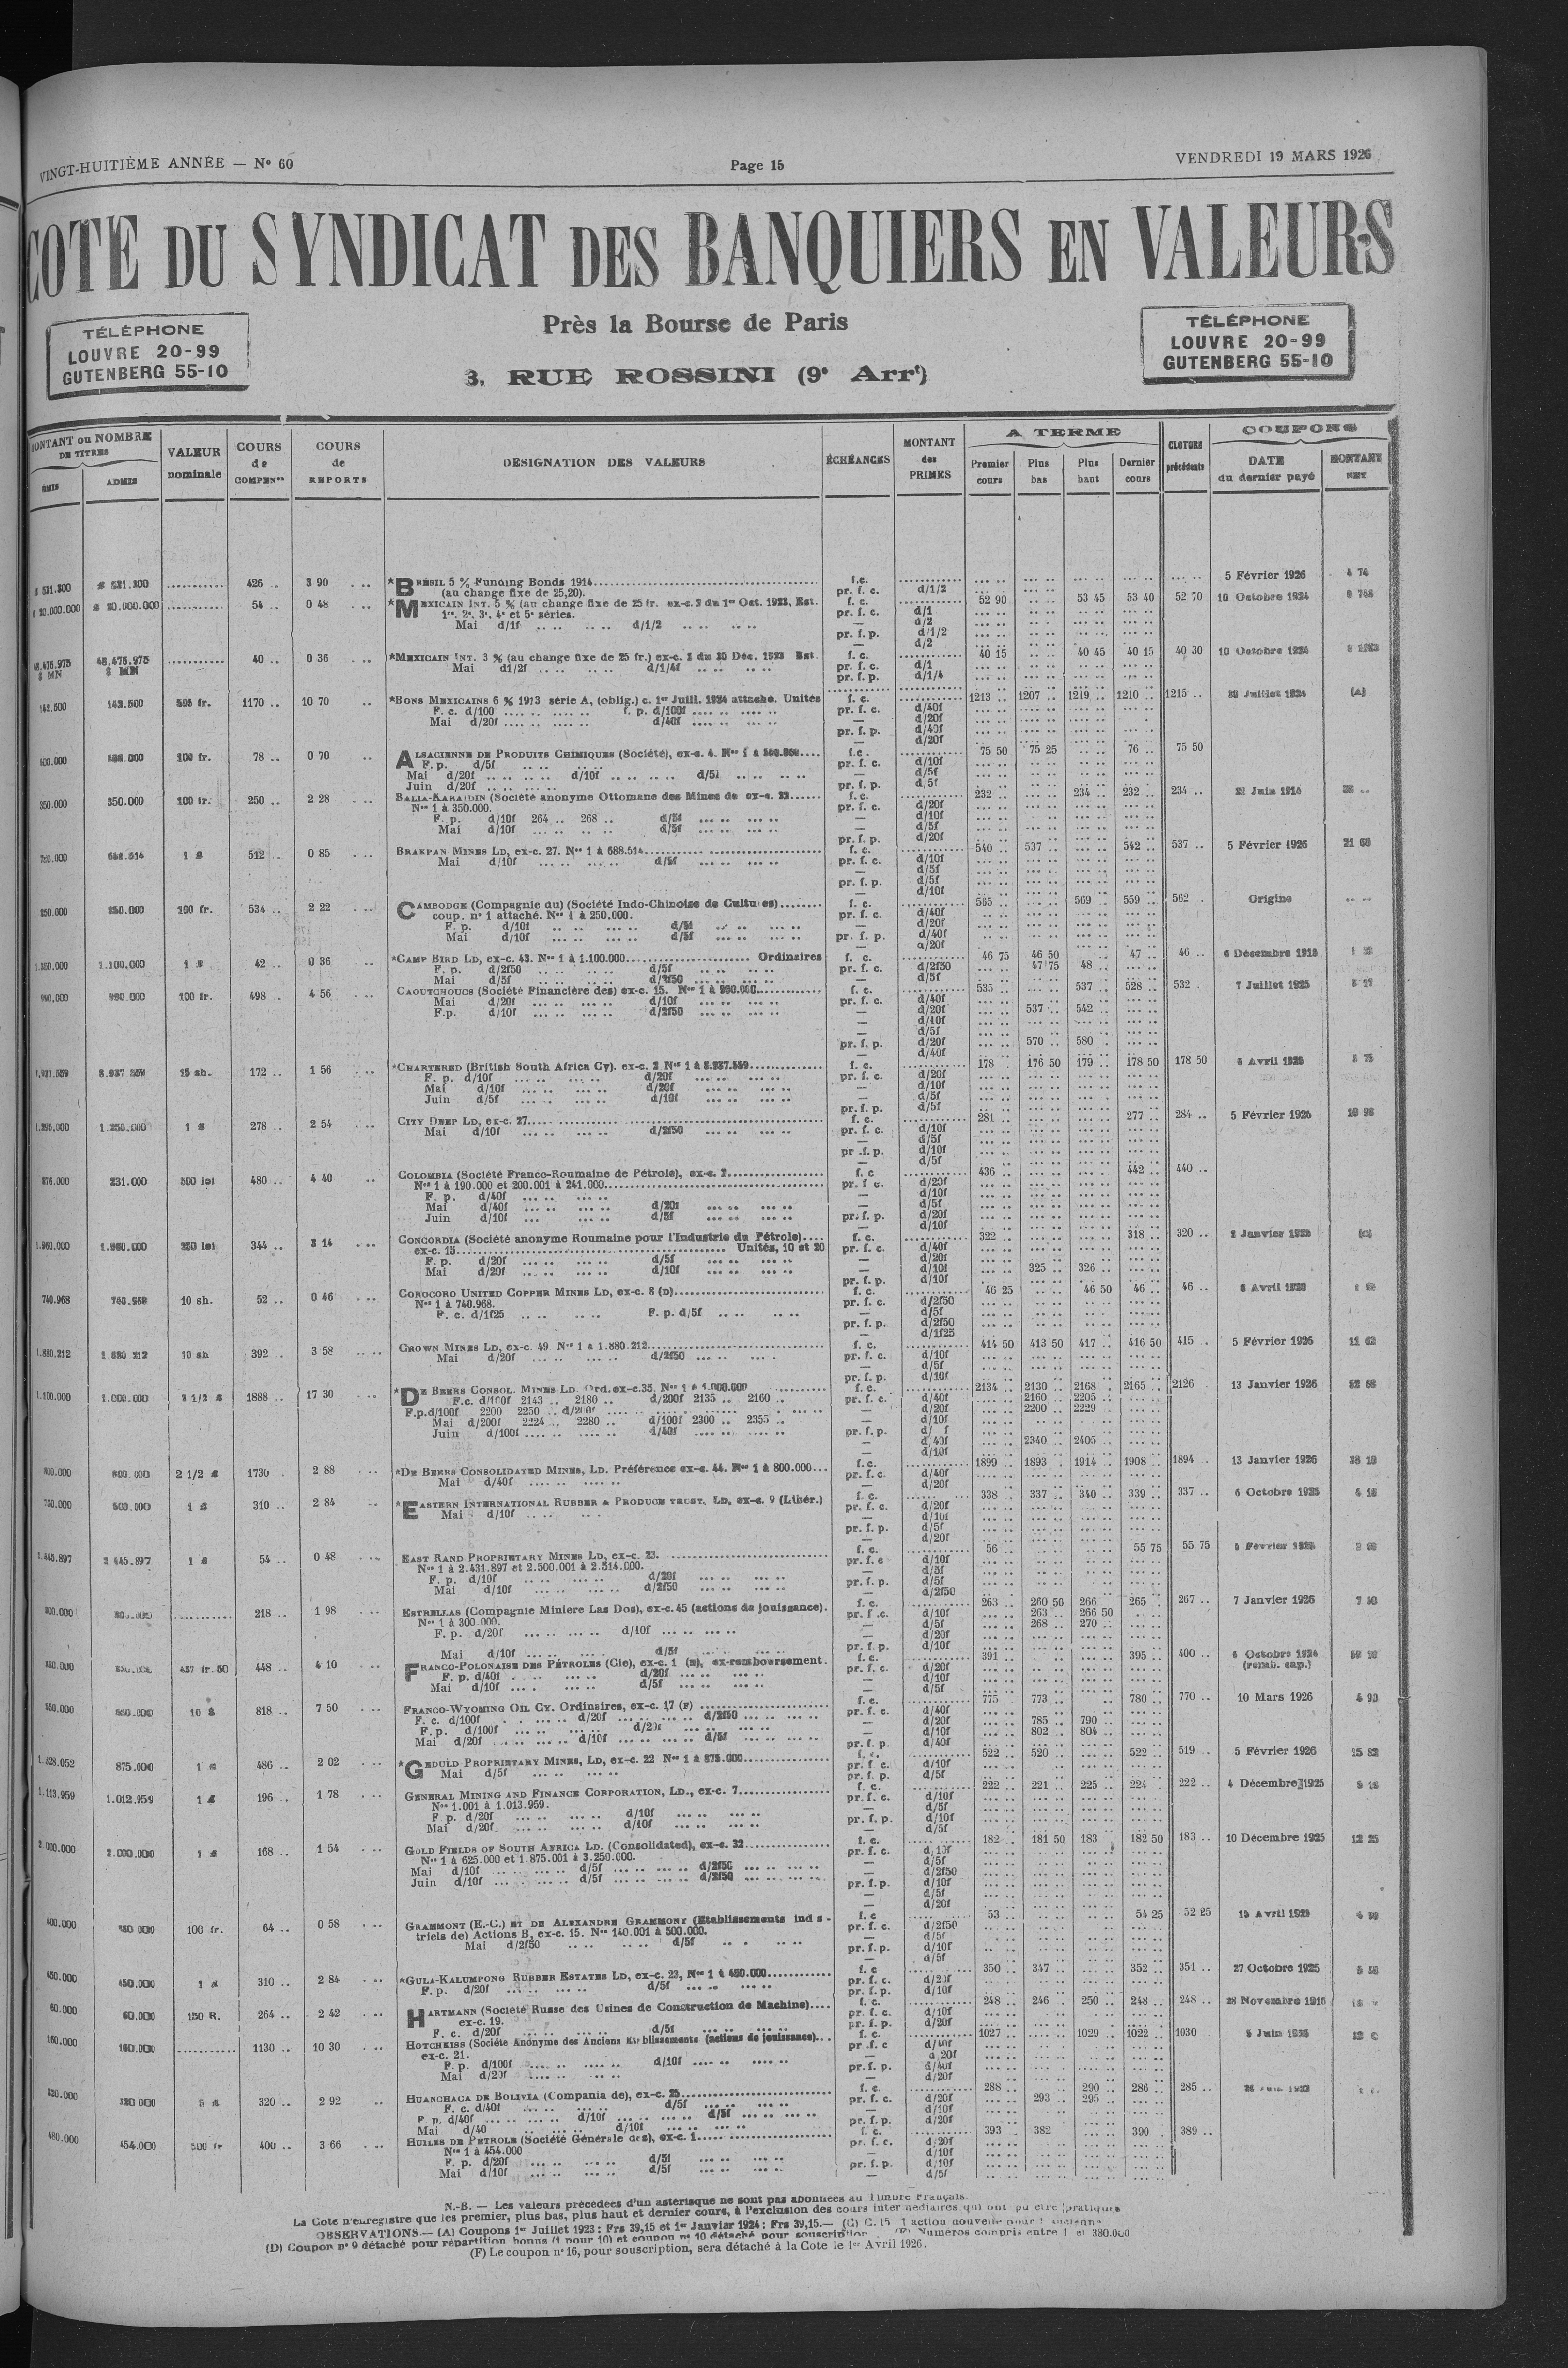 VINGT-HUITIÈME ANNÉE — N° 60
Page 15
VENDREDI 19 MARS 1926
COTE DU SYNDICAT DES BANQUIERS EN VALEURS
TÉLÉPHONE
LOUVRE 20-99
GUTENBERG 55-10
Près la Bourse de Paris
3, RUE ROSSINI (9e Arrt)
TÉLÉPHONE
LOUVRE 20-99
GUTENBERG 55-10
MONTANT ou NOMBRE DE TITRES
ÉMIS ADMIS
VALEUR nominale
COURS de COMPENon
COURS de REPORTS
DESIGNATION DES VALEURS
ÉCHÉANCES
MONTANT des PRIMES
A TERME
Premier cours Plus bas Plus haut Dernier cours
CLOTURE précédente
COUPONS
DATE du dernier payé
MONTANT NET
426 .. 3 90 *BRÉSIL 5 % Funding Bonds 1914 f.c. 5 Février 1926 4 74
(au change fixe de 25,20). pr. f. c. d/1/2
54 .. 0 48 *MEXICAIN INT. 5 % (au change fixe de 25 fr. ex-c. 3 du 1er Oct. 1923, Est. f. c. 52 90 53 45 53 40 52 70 10 Octobre 1924
1re, 2e, 3e, 4e et 5e séries. pr. f. c. d/1
Mai d/1f d/1/2 — d/2
pr. f. p. d/1/2
— d/2
48.476.975 $ MN 40 .. 0 36 *MEXICAIN INT. 3 % (au change fixe de 25 fr.) ex-c. 2 du 30 Déc. 1923 Est. f. c. 40 15 40 45 40 15 40 30 10 Octobre 1924
Mai d1/2f d/1/4f pr. f. c. d/1
pr. f. p. d/1/4
142.500 142.500 505 fr. 1170 .. 10 70 *BONS MEXICAINS 6 % 1913 série A, (oblig.) c. 1er Juill. 1924 attaché. Unités f. c. 1213 .. 1207 .. 1219 .. 1210 .. 1215 .. 20 Juillet 1924 (A)
F. c. d/100 f. p. d/100f pr. f. c. d/40f
Mai d/20f d/40f — d/20f
pr. f. p. d/40f
— d/20f
100 fr. 78 .. 0 70 ALSACIENNE DE PRODUITS CHIMIQUES (Société), ex-c. 4. f.c. 75 50 75 25 76 .. 75 50
F. p. d/5f pr. f. c. d/10f
Mai d/20f d/10f d/5f — d/5f
Juin d/20f pr. f. p. d/5f
350.000 350.000 100 fr. 250 .. 2 28 BALIA-KARAIDIN (Société anonyme Ottomane des Mines de ex-c. 23 f. c. 232 .. 234 .. 232 .. 234 .. 22 Juin 1914
Nos 1 à 350.000. pr. f. c. d/20f
F. p. d/10f 264 .. 268 .. d/5f — d/10f
Mai d/10f d/5f — d/5f
pr. f. p. d/20f
1 £ 512 .. 0 85 BRAKPAN MINES LD, ex-c. 27. Nos 1 à 688.514 f. c. 540 .. 537 .. 542 .. 537 .. 5 Février 1926
Mai d/10f d/5f pr. f. c. d/10f
— d/5f
pr. f. p. d/5f
— d/10f
250.000 250.000 100 fr. 534 .. 2 22 CAMBODGE (Compagnie du) (Société Indo-Chinoise de Cultures) f. c. 565 .. 569 .. 559 .. 562 . Origine
coup. n° 1 attaché. Nos 1 à 250.000. pr. f. c. d/40f
F. p. d/10f d/5f — d/20f
Mai d/10f d/5f pr. f. p. d/40f
— d/20f
1.100.000 1 £ 42 .. 0 36 *CAMP BIRD LD, ex-c. 43. Nos 1 à 1.100.000 Ordinaires f. c. 46 75 46 50 47 .. 46 .. 6 Décembre 1915
F. p. d/2f50 d/5f pr. f. c. d/2f50 47 75 48 ..
Mai d/5f d/2f50 — d/5f
990.000 990.000 100 fr. 498 . 4 56 CAOUTCHOUCS (Société Financière des) ex-c. 15. f. c. 535 .. 537 .. 528 .. 532 . 7 Juillet 1925
Mai d/20f d/10f pr. f. c. d/40f
F.p. d/10f d/2f50 — d/20f 537 .. 542 ..
— d/10f
— d/5f
pr. f. p. d/20f 570 .. 580 .
— d/40f
15 sh. 172 .. 1 56 *CHARTERED (British South Africa Cy). ex-c. 2 f. c. 178 . 176 50 179 .. 178 50 178 50 6 Avril 1925 3 75
F. p. d/10f d/20f pr. f. c. d/20f
Mai d/10f d/20f — d/10f
Juin d/5f d/10f — d/5f
pr. f. p. d/5f
1 £ 278 .. 2 54 CITY DEEP LD, ex-c. 27 f. c. 281 .. 277 .. 284 .. 5 Février 1926 10 98
Mai d/10f d/2f50 pr. f. c. d/10f
— d/5f
pr .f. p. d/10f
— d/5f
231.000 500 lei 480 .. 4 40 COLOMBIA (Société Franco-Roumaine de Pétrole), ex-c. 2 f. c 436 .. 442 .. 440 ..
Nos 1 à 190.000 et 200.001 à 241.000 pr. f c. d/20f
F. p. d/40f — d/10f
Mai d/40f d/20f — d/5f
Juin d/10f d/5f pr. f. p. d/20f
— d/10f
344 .. 3 14 CONCORDIA (Société anonyme Roumaine pour l'Industrie du Pétrole) f. c. 322 .. 318 .. 320 ..
ex-c. 15 Unités, 10 et 20 pr. f. c. d/40f
F. p. d/20f d/5f — d/20f
Mai d/20f d/10f — d/10f 325 .. 326 ..
pr. f. p. d/10f
740.968 10 sh. 52 .. 0 46 COROCORO UNITED COPPER MINES LD, ex-c. 8 (D) f. c. 46 25 46 50 46 .. 46 ..
Nos 1 à 740.968. pr. f. c. d/2f50
F. c. d/1f25 F. p. d/5f — d/5f
pr. f. p. d/2f50
— d/1f25
1.880.212 10 sh 392 .. 3 58 CROWN MINES LD, ex-c. 49 Nos 1 à 1.880.212 f. c. 414 50 413 50 417 .. 416 50 415 .. 5 Février 1926 11 62
Mai d/20f d/2f50 pr. f. c. d/10f
— d/5f
pr. f. p. d/10f
1.000.000 2 1/2 £ 1888 .. 17 30 *DE BEERS CONSOL. MINES LD. Ord. ex-c. 35, Nos 1 à 1.000.000 f. c. 2134 .. 2130 .. 2168 .. 2165 .. 2126 . 13 Janvier 1926
F.c. d/100f 2143 .. 2180 .. d/200f 2135 .. 2160 .. pr. f. c. d/40f 2160 .. 2205 ..
F.p.d/100f 2200 2250 .. d/200f — d/20f 2200 .. 2229 ..
Mai d/200f 2224 .. 2280 .. d/100f 2300 .. 2355 .. — d/10f
Juin d/100f d/40f pr. f. p.
— d/40f 2340 .. 2405 ..
— d/10f
2 1/2 £ 1730 . 2 88 *DE BEERS CONSOLIDATED MINES, LD. Préférence ex-c. 44. Nos 1 à 800.000 f. c. 1899 .. 1893 . 1914 .. 1908 .. 1894 .. 13 Janvier 1926
Mai d/40f pr. f. c. d/40f
— d/20f
1 £ 310 .. 2 84 *EASTERN INTERNATIONAL RUBBER & PRODUCE TRUST, LD, ex-c. 9 (Libér.) f. c. 338 .. 337 .. 340 .. 339 .. 337 .. 6 Octobre 1925
Mai d/10f pr. f. c. d/20f
— d/10f
pr. f. p. d/5f
— d/20f
2 445.897 1 £ 54 .. 0 48 EAST RAND PROPRIETARY MINES LD, ex-c. 23. f. c. 56 .. 55 75 55 75
Nos 1 à 2.431.897 et 2.500.001 à 2.514.000. pr. f. c d/10f
F. p. d/10f d/20f — d/5f
Mai d/10f d/2f50 pr. f. p. d/5f
— d/2f50
218 .. 1 98 ESTRELLAS (Compagnie Minière Las Dos), ex-c. 45 (actions de jouissance). f. c. 263 .. 260 50 266 265 . 267 .. 7 Janvier 1926
Nos 1 à 300.000. pr. f .c. d/10f 263 .. 266 50
F. p. d/20f d/10f — d/5f 268 .. 270 ..
— d/20f
Mai d/10f d/5f pr. f. p. d/10f
437 fr. 50 448 .. 4 10 FRANCO-POLONAISE DES PÉTROLES (Cie), ex-c. 1 (E), ex-remboursement. f. c. 391 .. 395 .. 400 .. 6 Octobre 1924
F. p. d/40f d/20f pr. f. c. d/20f (remb. cap.)
Mai d/10f d/5f — d/10f
— d/5f
10 $ 818 .. 7 50 FRANCO-WYOMING OIL CY. Ordinaires, ex-c. 17 (F) f. c. 775 .. 773 .. 780 .. 770 .. 10 Mars 1926
F. c. d/100f d/20f d/2f50 pr. f. c. d/40f
F. p. d/100f d/20f — d/20f 785 .. 790 ..
Mai d/20f d/10f d/5f — d/10f 802 .. 804 ..
pr. f. p. d/40f
875.000 1 £ 486 .. 2 02 *GEDULD PROPRIETARY MINES, LD, ex-c. 22 Nos 1 à 875.000 f. c. 522 .. 520 .. 522 .. 519 .. 5 Février 1926 15 82
Mai d/5f pr. f. c. d/10f
pr. f. p. d/5f
1.113.959 1.012.959 1 £ 196 .. 1 78 GENERAL MINING AND FINANCE CORPORATION, LD., ex-c. 7 f. c. 222 .. 221 .. 225 .. 224 . 222 .. 4 Décembre 1925
Nos 1.001 à 1.013.959. pr. f. c. d/10f
F. p. d/20f d/10f — d/5f
Mai d/20f d/10f pr. f. p. d/10f
— d/5f
2.000.000 2.000.000 1 £ 168 .. 1 54 GOLD FIELDS OF SOUTH AFRICA LD. (Consolidated), ex-c. 32 f. c. 182 .. 181 50 183 . 182 50 183 .. 10 Décembre 1925 12 25
Nos 1 à 625.000 et 1.875.001 à 3.250.000. pr. f. c. d/10f
Mai d/10f d/5f d/2f50 — d/5f
Juin d/10f d/5f d/2f50 — d/2f50
pr. f. p. d/10f
— d/5f
— d/20f
400.000 100 fr. 64 .. 0 58 GRAMMONT (E.-C.) ET DE ALEXANDRE GRAMMONT (Etablissements indus- f. c 53 .. 54 25 52 25 15 Avril 1925
triels de) Actions B, ex-c. 15. Nos 140.001 à 500.000. pr. f. c. d/2f50
Mai d/2f50 d/5f — d/5f
pr. f. p. d/10f
— d/5f
450.000 450.000 1 £ 310 .. 2 84 *GULA-KALUMPONG RUBBER ESTATES LD, ex-c. 23, Nos 1 à 450.000 f. c 350 .. 347 .. 352 .. 351 .. 27 Octobre 1925
F. p. d/20f d/5f pr. f. c. d/20f
pr. f. p. d/10f
60.000 60.000 150 R. 264 .. 2 42 HARTMANN (Société Russe des Usines de Construction de Machine) f. c. 248 .. 246 .. 250 .. 248 .. 248 .. 28 Novembre 1916
ex-c. 19. pr. f. c. d/10f
F. c. d/20f d/5f pr. f. p. d/20f
160.000 160.000 1130 .. 10 30 HOTCHKISS (Société Anonyme des Anciens Etablissements (actions de jouissance) f. c. 1027 .. 1029 .. 1022 .. 1030 5 Juin 1925
ex-c. 21. pr .f. c
F. p. d/100f d/10f — d/20f
Mai d/20f pr. f. p. d/40f
— d/20f
320 .. 2 92 HUANCHACA DE BOLIVIA (Compania de), ex-c. 25 f. c. 288 .. 290 .. 286 .. 285 ..
F. c. d/40f d/5f pr. f. c. d/20f 293 .. 295 ..
F. p. d/40f d/10f d/5f — d/10f
Mai d/40 d/10f pr. f. p. d/20f
480.000 454.000 500 fr 400 .. 3 66 HUILES DE PETROLE (Société Générale des), ex-c. 1 f. c. 393 .. 382 390 . 389 ..
Nos 1 à 454.000 pr. f. c. d/20f
F. p. d/20f d/5f — d/10f
Mai d/10f d/5f pr. f. p. d/10f
— d/5f
N.-B. — Les valeurs précédées d'un astérisque ne sont pas abonnées au Timbre Français.
La Cote n'enregistre que les premier, plus bas, plus haut et dernier cours, à l'exclusion des cours intermédiaires qui ont pu être pratiqués
OBSERVATIONS.— (A) Coupons 1er Juillet 1923 : Frs 39,15 et 1er Janvier 1924 : Frs 39,15.— (C) C. 15 1 action nouvelle pour
(D) Coupon n° 9 détaché pour répartition bonus (1 pour 10) et coupon n° 10 détaché pour souscription (E) Numéros compris entre 1 et 380.000
(F) Le coupon n° 16, pour souscription, sera détaché à la Cote le 1er Avril 1926.